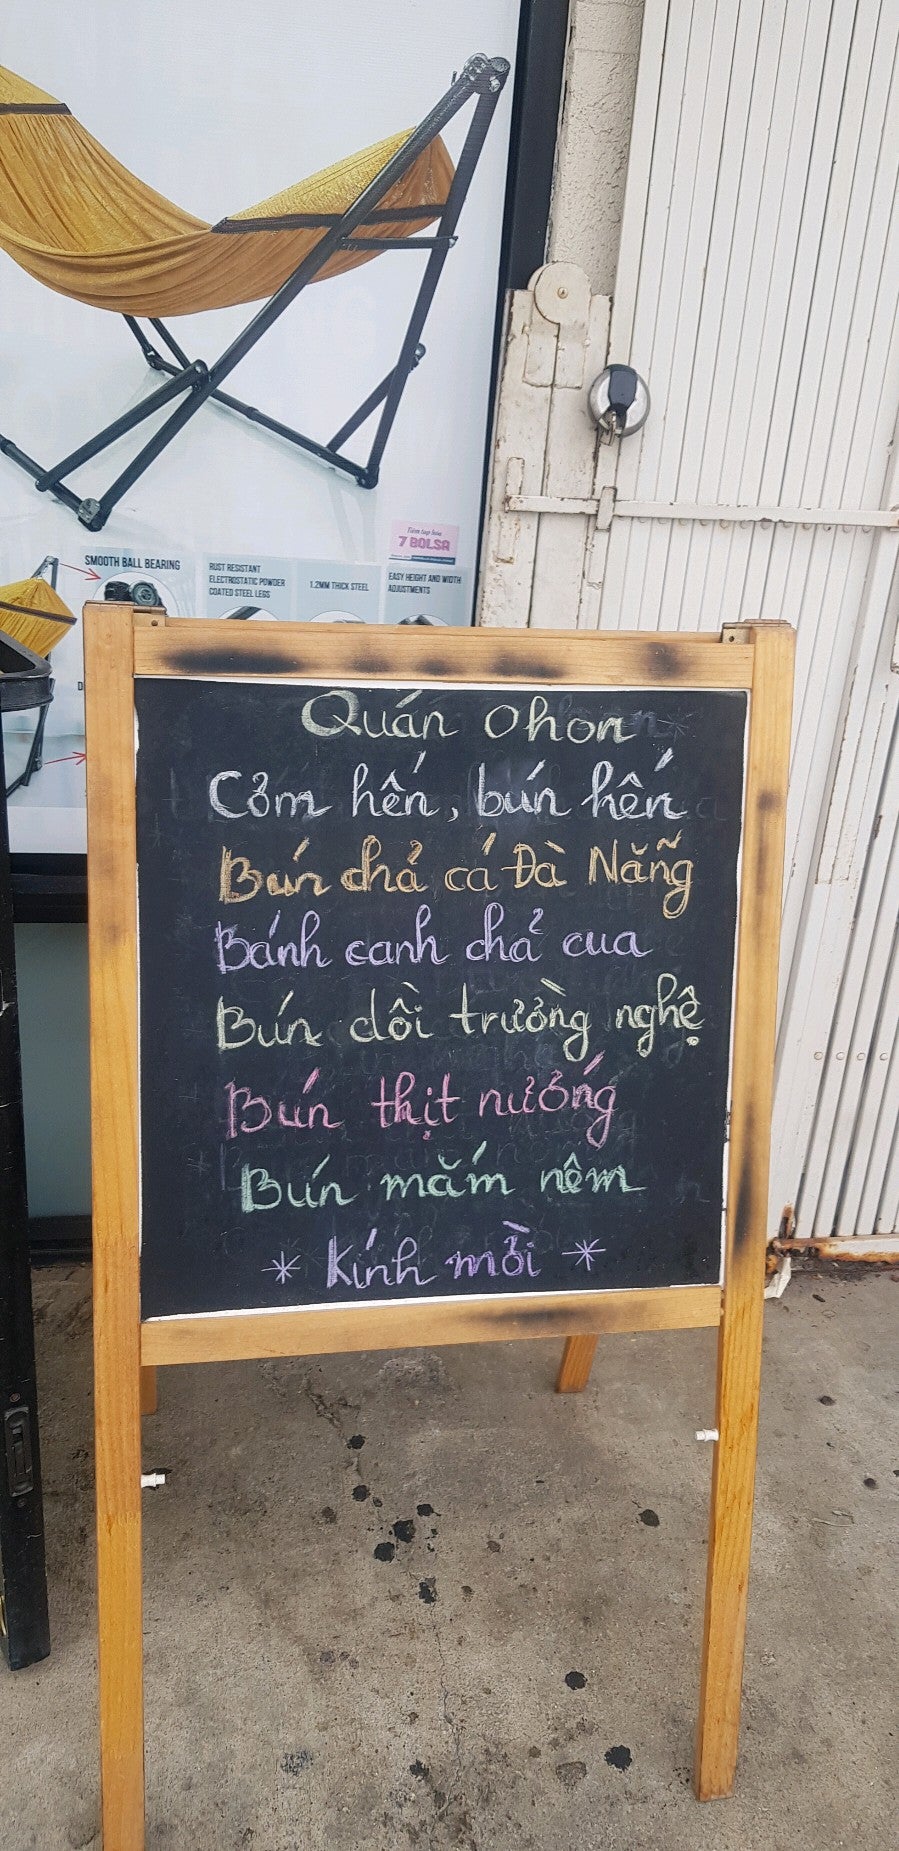 Tiệm tạp hóa
7 BOLSA
SMOOTH BALL BEARING
RUST RESISTANT
ELECTROSTATIC POWDER
COATED STEEL LEGS
1.2MM THICK STEEL
EASY HEIGHT AND WIDTH
ADJUSTMENTS
Quán Ohon
Cơm hến, bún hến
Bún chả cá Đà Nẵng
Bánh canh chả cua
Bún dồi trường nghệ
Bún thịt nướng
Bún mắm nêm
* Kính mời *